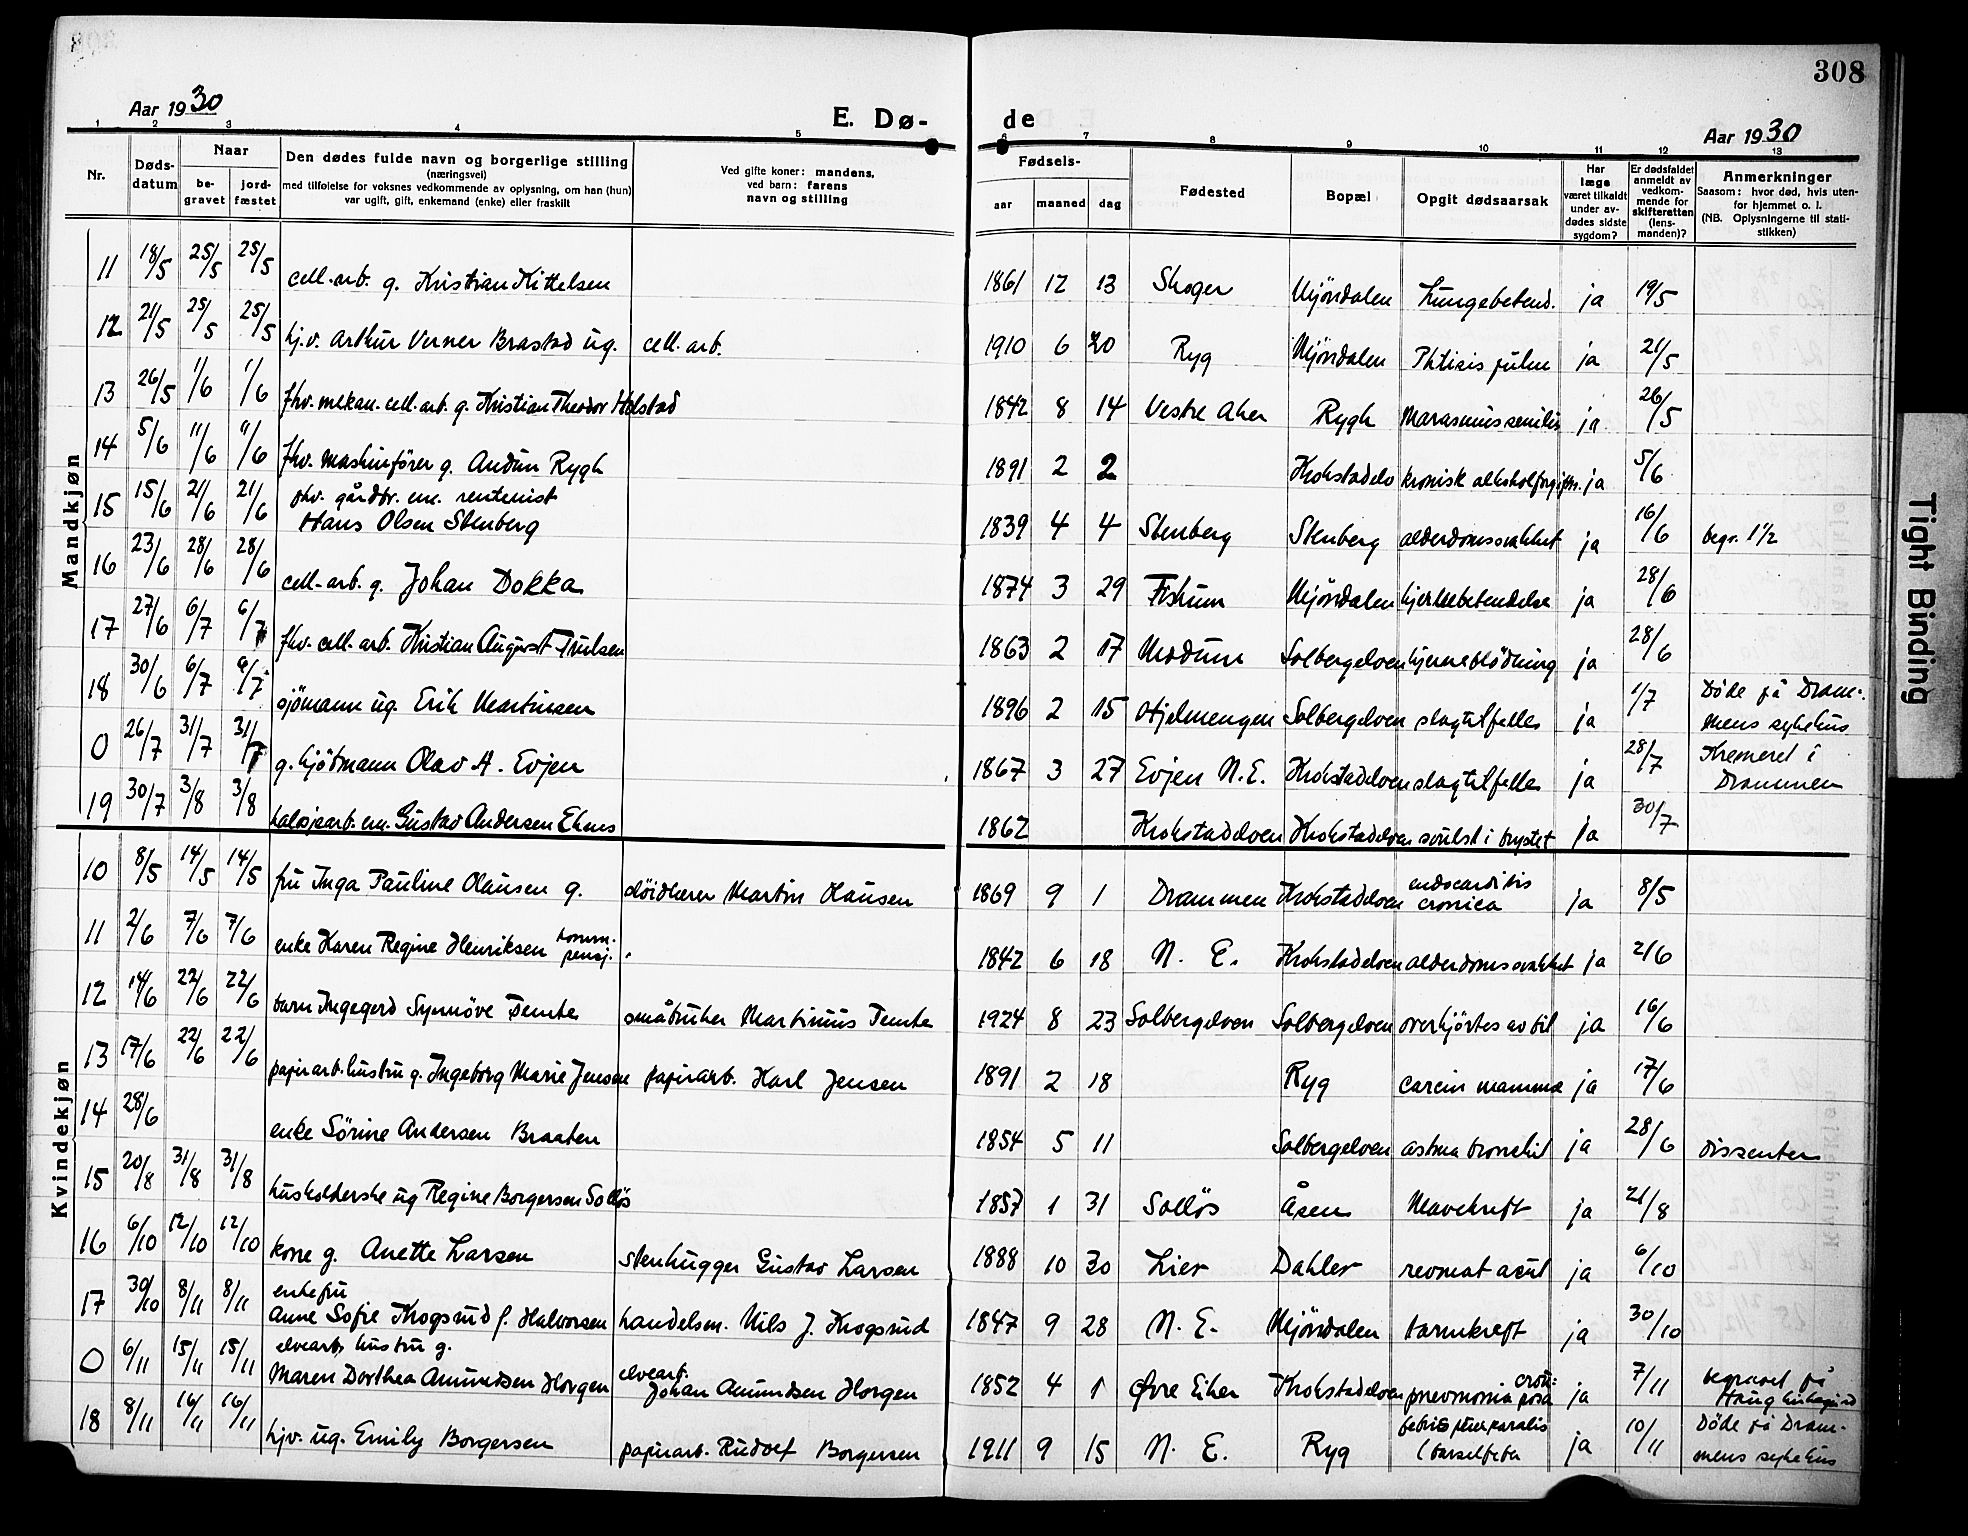 308
Aar 1930
E. Dø-
de
Aar 1930
1 2 3 4 5 6 7 8 9 10 11 12 13
Nr.
Døds-
datum
Naar
be-
gravet
jord-
fæstet
Den dødes fulde navn og borgerlige stilling
(næringsvei)
med tilføielse for voksnes vedkommende av oplysning, om han (hun)
var ugift, gift, enkemand (enke) eller fraskilt
Ved gifte koner: mandens,
ved barn: farens
navn og stilling
Fødsels-
aar maaned dag
Fødested
Bopæl
Opgit dødsaarsak
Har
læge
været tilkaldt
under av-
dødes sidste
sygdom?
Er dødsfaldet
anmeldt av
vedkom-
mende for
skifteretten
(lens-
manden)?
Anmerkninger
Saasom: hvor død, hvis uten-
for hjemmet o. l.
(NB. Oplysningerne til stati-
stikken)
Mandkjøn
11 18/5 25/5 25/5 cell.arb. g. Kristian Kittelsen 1861 12 13 Skoger Mjöndalen Lungebetend. ja 19/5
12 21/5 25/5 25/5 hj.v. Arthur Verner Brastad ug. cell. arb. 1910 6 20 Ryg Mjöndalen Phtisis pulm ja 21/5
13 26/5 1/6 1/6 fhv. mekan. cell. arb. g. Kristian Theodor Holstad 1842 8 14 Vestre Aker Rygh Marasmus senilis ja 26/5
14 5/6 11/6 11/6 fhv. maskinfører g. Audun Rygh 1891 2 2 Krokstadelv kronisk alkoholforgiftn. ja 5/6
15 15/6 21/6 21/6 fhv. gårdbr. em. rentenist
Hans Olsen Stenberg 1839 4 4 Stenberg Stenberg alderdomssvakhet ja 16/6 begr. 1 1/2
16 23/6 28/6 28/6 cell. arb. g. Johan Dokka 1874 3 29 Fiskum Mjöndalen hjertebetendelse ja 28/6
17 27/6 6/7 6/7 fhv. cell. arb. Kristian August Trulsen 1863 2 17 Modum Solbergelven hjerneblödning ja 28/6
18 30/6 6/7 6/7 sjömann ug. Erik Martinsen 1896 2 15 Hjelmengen Solbergelven slagtilfelle ja 1/7 Döde på Dram-
mens sykehus
0 26/7 31/7 31/7 g. kjötmann Olav A. Evjen 1867 3 27 Evjen N.E. Krokstadelven slagtilfelle ja 28/7 Kremeret i
Drammen
19 30/7 3/8 3/8 em. Gustav Andersen Ekens 1862 Krokstadelven Krokstadelven svulst i brystet ja 30/7
Kvindekjøn
10 8/5 14/5 14/5 fru Inga Pauline Olausen g. Martin Hausen 1869 9 1 Drammen Krokstadelven endocarditis
cronica ja 8/5
11 2/6 7/6 7/6 enke Karen Regine Henriksen komm.
pensj. 1842 6 18 N. E. Krokstadelven alderdomssvakhet ja 2/6
12 14/6 22/6 22/6 barn Ingegerd Synnöve Temte småbruker Martinius Temte 1924 8 23 Solbergelven Solbergelven overkjörtes av bil ja 16/6
13 17/6 22/6 22/6 papirarb.hustru g. Ingeborg Marie Jensen papirarb. Karl Jensen 1891 2 18 Ryg carcin mammæ ja 17/6
14 28/6 enke Sörine Andersen Braaten 1854 5 11 Solbergelven astma bronchit ja 28/6 Dissenter
15 20/8 31/8 31/8 husholderske ug Regine Borgersen Solløs 1857 1 31 Solløs Åsen Mavekreft ja 21/8
16 6/10 12/10 12/10 kone g. Anette Larsen stenhugger Gustav Larsen 1888 10 30 Lier Dahler revmat acut ja 6/10
17 30/10 8/11 8/11 enkefru
Anne Sofie Krogsrud f. Halvorsen handelsm. Nils J. Krogsrud 1847 9 28 N. E. Mjöndalen tarmkreft ja 30/10
0 6/11 15/11 15/11 elvearb. hustru g.
Maren Dorthea Amundsen Horgen elvearb.
Johan Amundsen Horgen 1852 4 1 Øvre Eiker Krokstadelven pneumonia crou-
posa ja 7/11 begravet på
Haug kirkegård
18 8/11 16/11 16/11 hjv. ug. Emily Borgersen papirarb. Rudolf Borgersen 1911 9 15 N. E. Ryg febris puerparalis
(barselfeber ja 10/11 Döde på Dram-
mens sykehus
Tight Binding